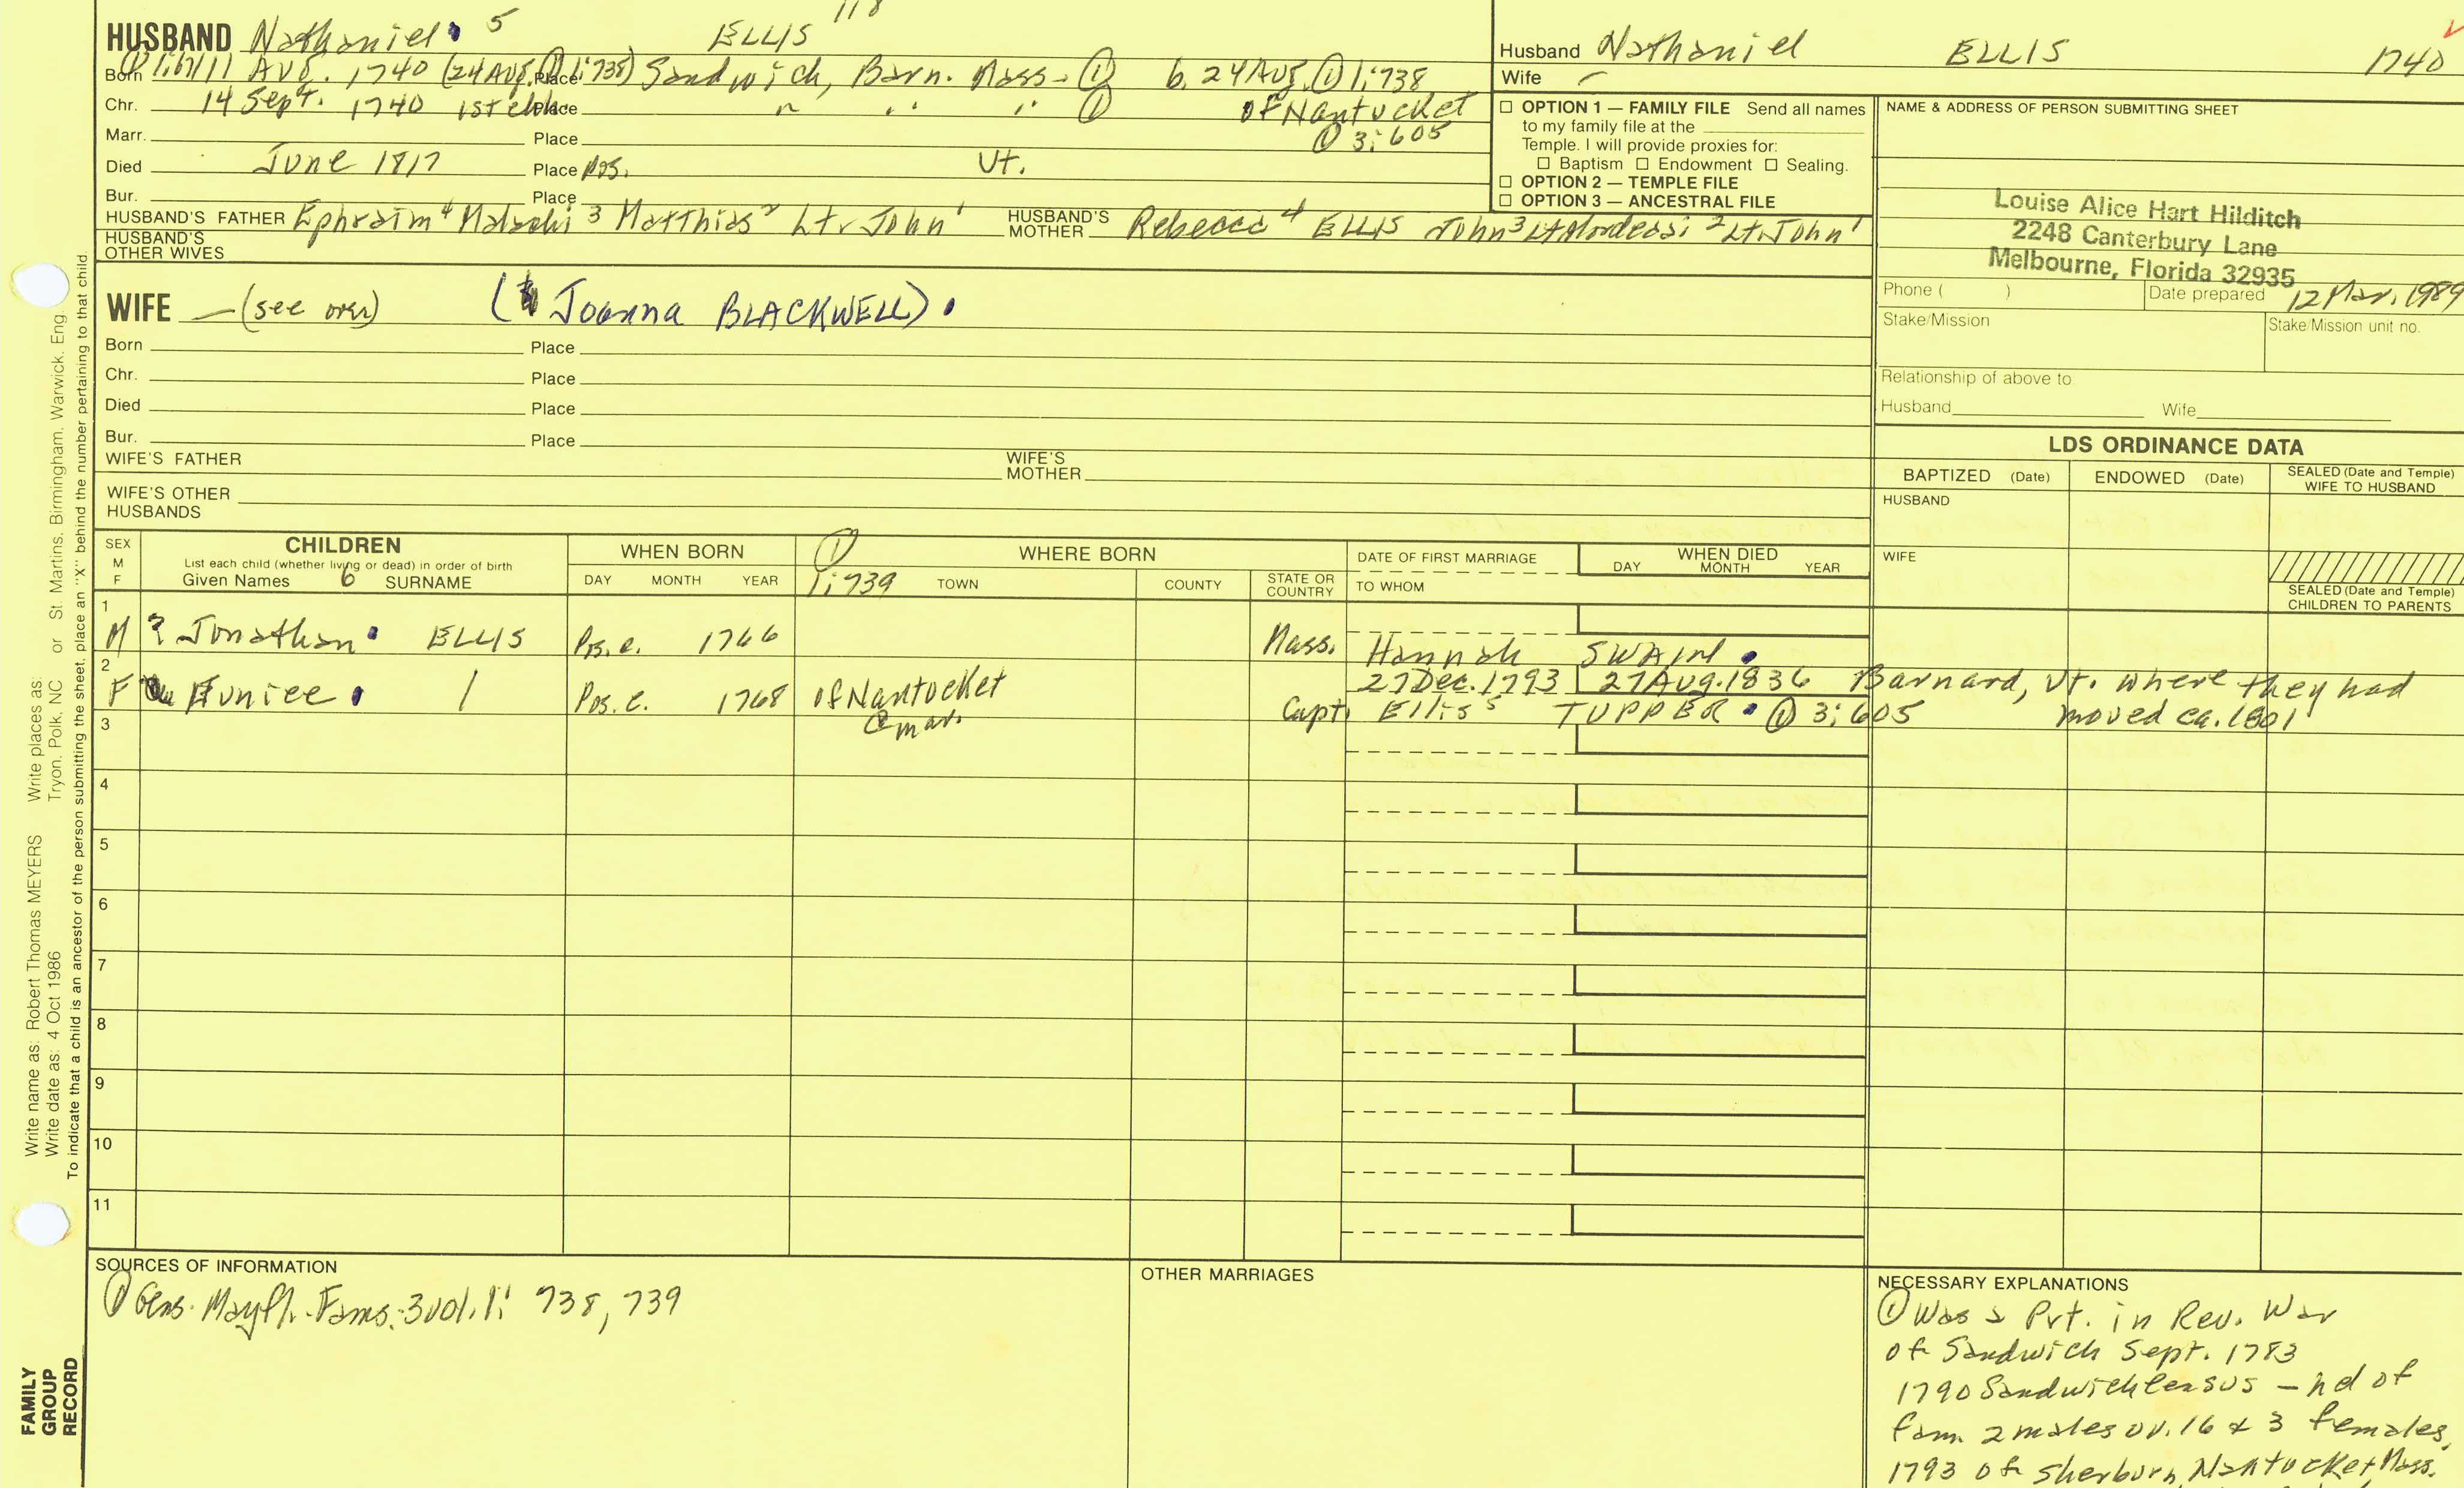 118
HUSBAND Nathaniel 5 ELLIS
Born 11 Aug. 1740 (24 Aug. ① 1:738) Place Sandwich, Barn. Mass. ① b. 24 Aug. ① 1:738
Chr. 14 Sept. 1740 1st ch Place " " " ① of Nantucket
Marr. Place ① 3:605
Died June 1817 Place Pos. Vt.
Bur. Place
HUSBAND'S FATHER Ephraim 4 Malachi 3 Matthias 2 Lt. John 1 HUSBAND'S MOTHER Rebecca 4 ELLIS John 3 Lt Mordecai 2 Lt. John 1
HUSBAND'S OTHER WIVES
WIFE — (see over) (Joanna BLACKWELL).
Born Place
Chr. Place
Died Place
Bur. Place
WIFE'S FATHER WIFE'S MOTHER
WIFE'S OTHER HUSBANDS
Husband Nathaniel ELLIS 1740
Wife —
☐ OPTION 1 — FAMILY FILE Send all names
to my family file at the
Temple. I will provide proxies for:
☐ Baptism ☐ Endowment ☐ Sealing.
☐ OPTION 2 — TEMPLE FILE
☐ OPTION 3 — ANCESTRAL FILE
NAME & ADDRESS OF PERSON SUBMITTING SHEET
Louise Alice Hart Hilditch
2248 Canterbury Lane
Melbourne, Florida 32935
Phone ( ) Date prepared 12 Mar. 1989
Stake/Mission Stake/Mission unit no.
Relationship of above to
Husband Wife
LDS ORDINANCE DATA
BAPTIZED (Date) ENDOWED (Date) SEALED (Date and Temple) WIFE TO HUSBAND
HUSBAND
WIFE
SEALED (Date and Temple) CHILDREN TO PARENTS
SEX M F
CHILDREN
List each child (whether living or dead) in order of birth
Given Names 6 SURNAME
WHEN BORN
DAY MONTH YEAR
① WHERE BORN
1:739 TOWN COUNTY STATE OR COUNTRY
DATE OF FIRST MARRIAGE
TO WHOM
WHEN DIED
DAY MONTH YEAR
1
M ? Jonathan ELLIS Ps. c. 1766 Mass. Hannah SWAIN
2
F Eunice / Pos. c. 1768 of Nantucket 27 Dec. 1793 27 Aug. 1836 Barnard, Vt. where they had
@ mar. Capt. Ellis 5 TUPPER ① 3:605 moved ca. 1801
3
4
5
6
7
8
9
10
11
SOURCES OF INFORMATION
① Gens. Mayfl. Fams. 3 vol. 1: 738, 739
OTHER MARRIAGES
NECESSARY EXPLANATIONS
① Was a Pvt. in Rev. War
of Sandwich Sept. 1783
1790 Sandwich Census — hd of
fam. 2 males ov. 16 & 3 females,
1793 of Sherburn, Nantucket, Mass.
Write name as: Robert Thomas MEYERS Write places as:
Write date as: 4 Oct 1986 Tryon, Polk, NC or St. Martins, Birmingham, Warwick, Eng.
To indicate that a child is an ancestor of the person submitting the sheet, place an "X" behind the number pertaining to that child.
FAMILY
GROUP
RECORD